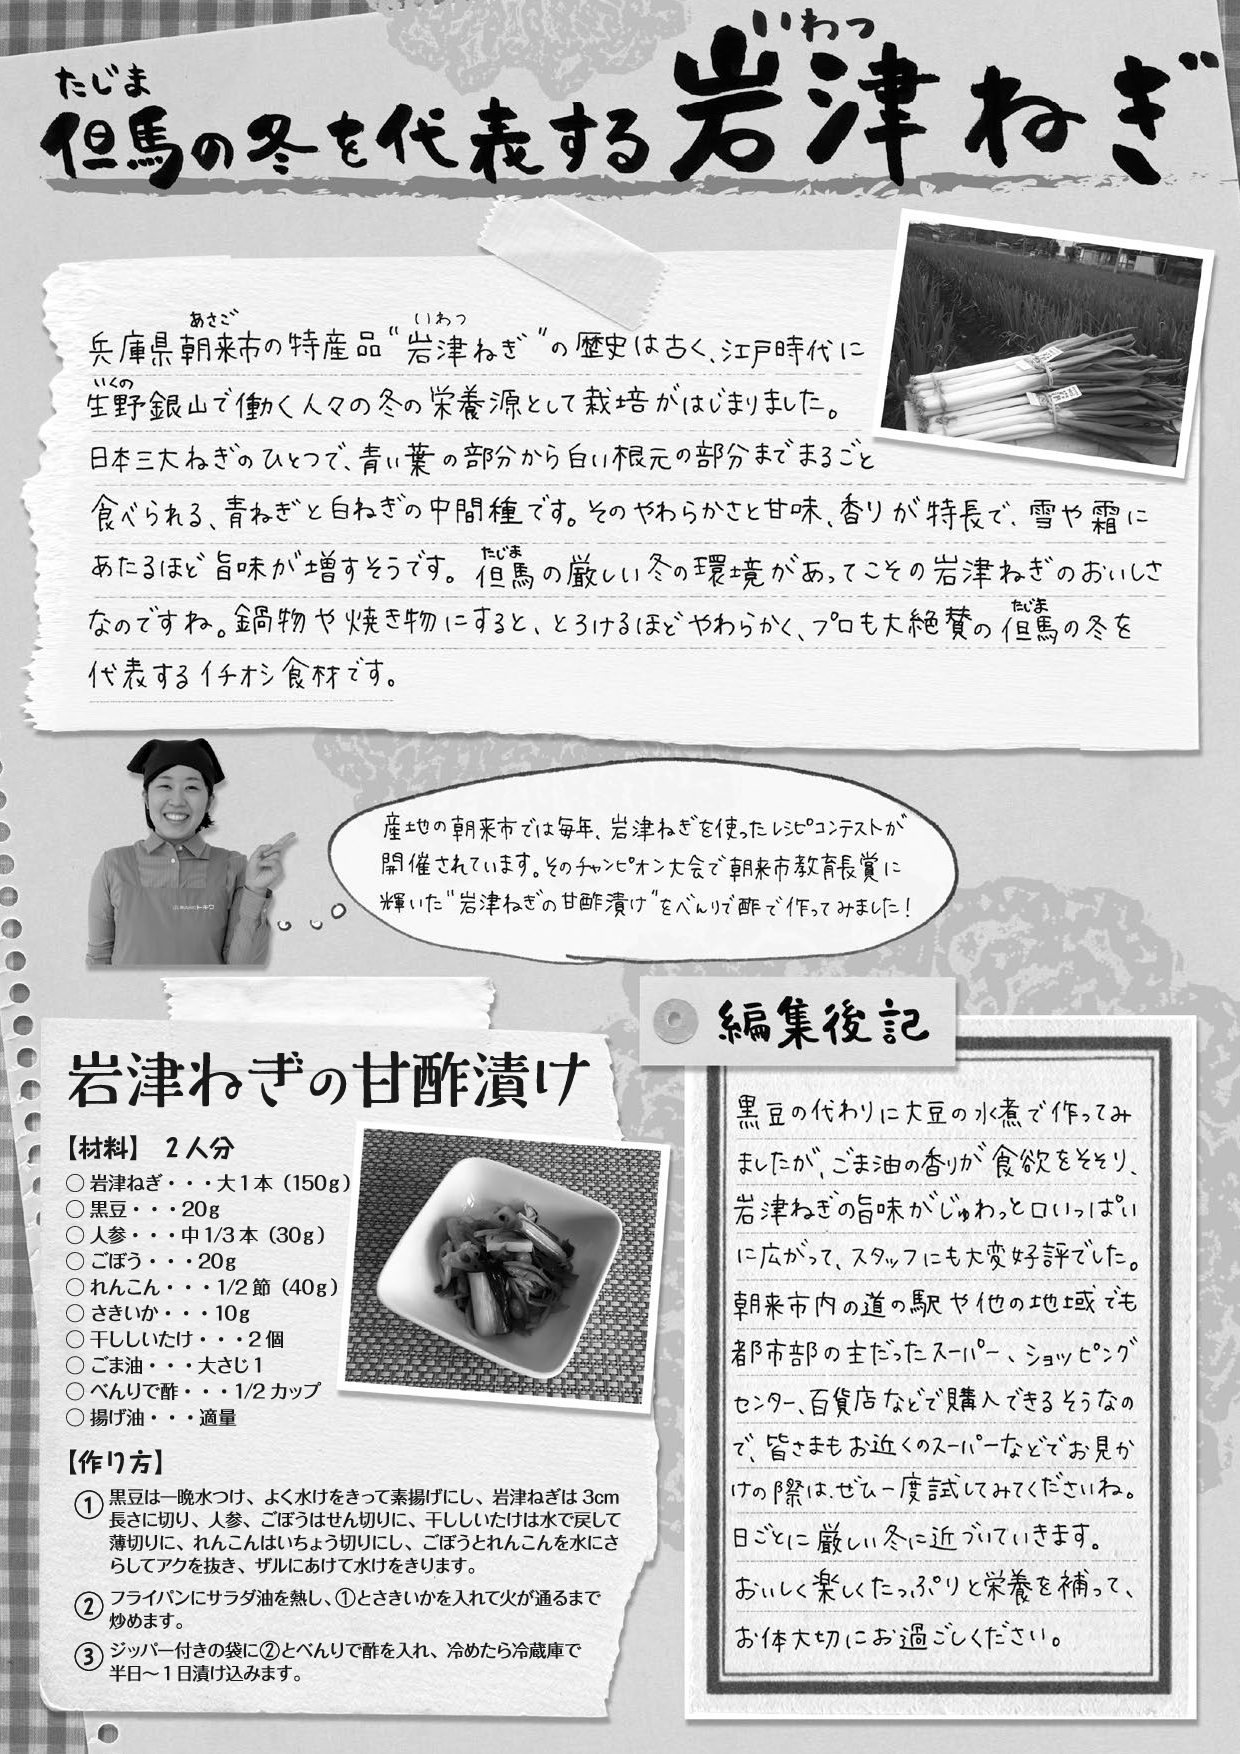 たじま
いわつ
但馬の冬を代表する岩津ねぎ
あさご
いわつ
兵庫県朝来市の特産品“岩津ねぎ”の歴史は古く、江戸時代に
いくの
生野銀山で働く人々の冬の栄養源として栽培がはじまりました。
日本三大ねぎのひとつで、青い葉の部分から白い根元の部分までまるごと
食べられる、青ねぎと白ねぎの中間種です。そのやわらかさと甘味、香りが特長で、雪や霜に
たじま
あたるほど旨味が増すそうです。但馬の厳しい冬の環境があってこその岩津ねぎのおいしさ
たじま
なのですね。鍋物や焼き物にすると、とろけるほどやわらかく、プロも大絶賛の但馬の冬を
代表するイチオシ食材です。
産地の朝来市では毎年、岩津ねぎを使ったレシピコンテストが
開催されています。そのチャンピオン大会で朝来市教育長賞に
輝いた“岩津ねぎの甘酢漬け”をべんりで酢で作ってみました!
トキワ
岩津ねぎの甘酢漬け
【材料】 2人分
○岩津ねぎ・・・大1本（150g）
○黒豆・・・20g
○人参・・・中1/3本（30g）
○ごぼう・・・20g
○れんこん・・・1/2節（40g）
○さきいか・・・10g
○干ししいたけ・・・2個
○ごま油・・・大さじ1
○べんりで酢・・・1/2カップ
○揚げ油・・・適量
【作り方】
① 黒豆は一晩水つけ、よく水けをきって素揚げにし、岩津ねぎは3cm
長さに切り、人参、ごぼうはせん切りに、干ししいたけは水で戻して
薄切りに、れんこんはいちょう切りにし、ごぼうとれんこんを水にさ
らしてアクを抜き、ザルにあけて水けをきります。
② フライパンにサラダ油を熱し、①とさきいかを入れて火が通るまで
炒めます。
③ ジッパー付きの袋に②とべんりで酢を入れ、冷めたら冷蔵庫で
半日～1日漬け込みます。
編集後記
黒豆の代わりに大豆の水煮で作ってみ
ましたが、ごま油の香りが食欲をそそり、
岩津ねぎの旨味がじゅわっと口いっぱい
に広がって、スタッフにも大変好評でした。
朝来市内の道の駅や他の地域でも
都市部の主だったスーパー、ショッピング
センター、百貨店などで購入できるそうなの
で、皆さまもお近くのスーパーなどでお見か
けの際は、ぜひ一度試してみてくださいね。
日ごとに厳しい冬に近づいていきます。
おいしく楽しくたっぷりと栄養を補って、
お体大切にお過ごしください。